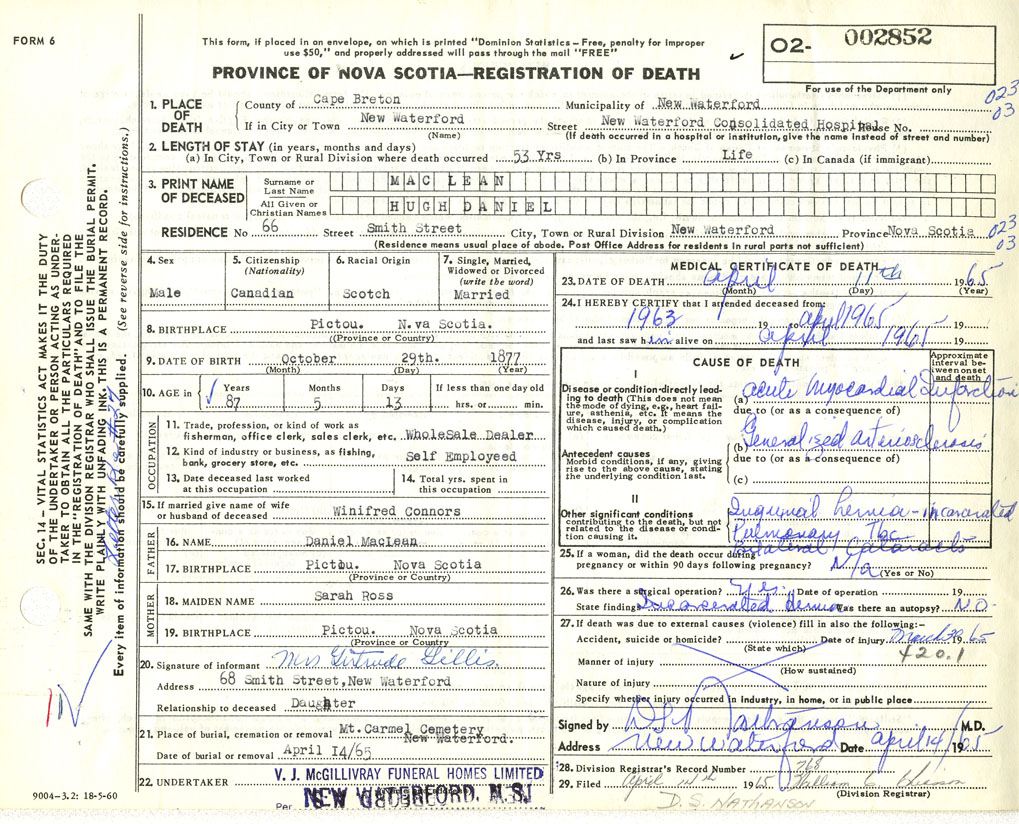 FORM 6
This form, if placed in an envelope, on which is printed "Dominion Statistics – Free, penalty for improper
use $50," and properly addressed will pass through the mail "FREE"
PROVINCE OF NOVA SCOTIA—REGISTRATION OF DEATH
O2- 002852
For use of the Department only
023
03
SEC. 14 – VITAL STATISTICS ACT MAKES IT THE DUTY
OF THE UNDERTAKER OR PERSON ACTING AS UNDER-
TAKER TO OBTAIN ALL THE PARTICULARS REQUIRED
IN THE "REGISTRATION OF DEATH" AND TO FILE THE
SAME WITH THE DIVISION REGISTRAR WHO SHALL ISSUE THE BURIAL PERMIT.
WRITE PLAINLY WITH UNFADING INK. THIS IS A PERMANENT RECORD.
Every item of information should be carefully supplied. (See reverse side for instructions.)
1. PLACE OF DEATH
County of Cape Breton Municipality of New Waterford
If in City or Town New Waterford Street New Waterford Consolidated Hospital House No.
(Name) (If death occurred in a hospital or institution, give the name instead of street and number)
2. LENGTH OF STAY (in years, months and days)
(a) In City, Town or Rural Division where death occurred 53 Yrs (b) In Province Life (c) In Canada (if immigrant)
3. PRINT NAME OF DECEASED
Surname or Last Name MAC LEAN
All Given or Christian Names HUGH DANIEL
RESIDENCE No 66 Street Smith Street City, Town or Rural Division New Waterford Province Nova Scotia
023
03
(Residence means usual place of abode. Post Office Address for residents in rural parts not sufficient)
4. Sex
Male
5. Citizenship (Nationality)
Canadian
6. Racial Origin
Scotch
7. Single, Married, Widowed or Divorced (write the word)
Married
8. BIRTHPLACE Pictou. N.va Scotia.
((Province or Country)
9. DATE OF BIRTH October 29th. 1877
(Month) (Day) (Year)
10. AGE in Years Months Days If less than one day old
87 5 13 hrs. or min.
OCCUPATION
11. Trade, profession, or kind of work as
fisherman, office clerk, sales clerk, etc. WholeSale Dealer
12. Kind of industry or business, as fishing,
bank, grocery store, etc. Self Employeed
13. Date deceased last worked at this occupation
14. Total yrs. spent in this occupation
15. If married give name of wife
or husband of deceased Winifred Connors
FATHER
16. NAME Daniel MacLean
17. BIRTHPLACE Pictou. Nova Scotia
(Province or Country)
MOTHER
18. MAIDEN NAME Sarah Ross
19. BIRTHPLACE Pictou. Nova Scotia
(Province or Country)
20. Signature of informant Mrs Gertrude Gillis.
Address 68 Smith Street, New Waterford
Relationship to deceased Daughter
21. Place of burial, cremation or removal Mt. Carmel Cemetery
New Waterford.
Date of burial or removal April I4/65
22. UNDERTAKER V. J. McGILLIVRAY FUNERAL HOMES LIMITED
Per NEW WATERFORD, N.S.
9004-3.2: 18-5-60
MEDICAL CERTIFICATE OF DEATH
23. DATE OF DEATH April 11th 1965
(Month) (Day) (Year)
24. I HEREBY CERTIFY that I attended deceased from:
1963 19 to April 1965 19
and last saw him alive on April 1965 19
CAUSE OF DEATH
Approximate interval between onset and death
I
Disease or condition directly lead-
ing to death (This does not mean
the mode of dying, e.g., heart fail-
ure, asthenia, etc. It means the
disease, injury, or complication
which caused death.)
(a) acute Myocardial Infarction
due to (or as a consequence of)
(b) Generalized arteriosclerosis
due to (or as a consequence of)
Antecedent causes
Morbid conditions, if any, giving
rise to the above cause, stating
the underlying condition last.
(c)
II
Other significant conditions
contributing to the death, but not
related to the disease or condi-
tion causing it.
Inguinal hernia - incarcerated
Pulmonary Tbc
bilateral Cataracts
25. If a woman, did the death occur during
pregnancy or within 90 days following pregnancy? N/a (Yes or No)
26. Was there a surgical operation? Yes. Date of operation
State findings Incarcerated hernia Was there an autopsy? NO-
27. If death was due to external causes (violence) fill in also the following:–
Accident, suicide or homicide? Date of injury March 30 1965
(State which)
420.1
Manner of injury
(How sustained)
Nature of injury
Specify whether injury occurred in industry, in home, or in public place
Signed by D S Nathanson M.D.
Address New Waterford Date April 14/ 1965
28. Division Registrar's Record Number 768
29. Filed April 14th 1965 William
(Division Registrar)
D. S. NATHANSON